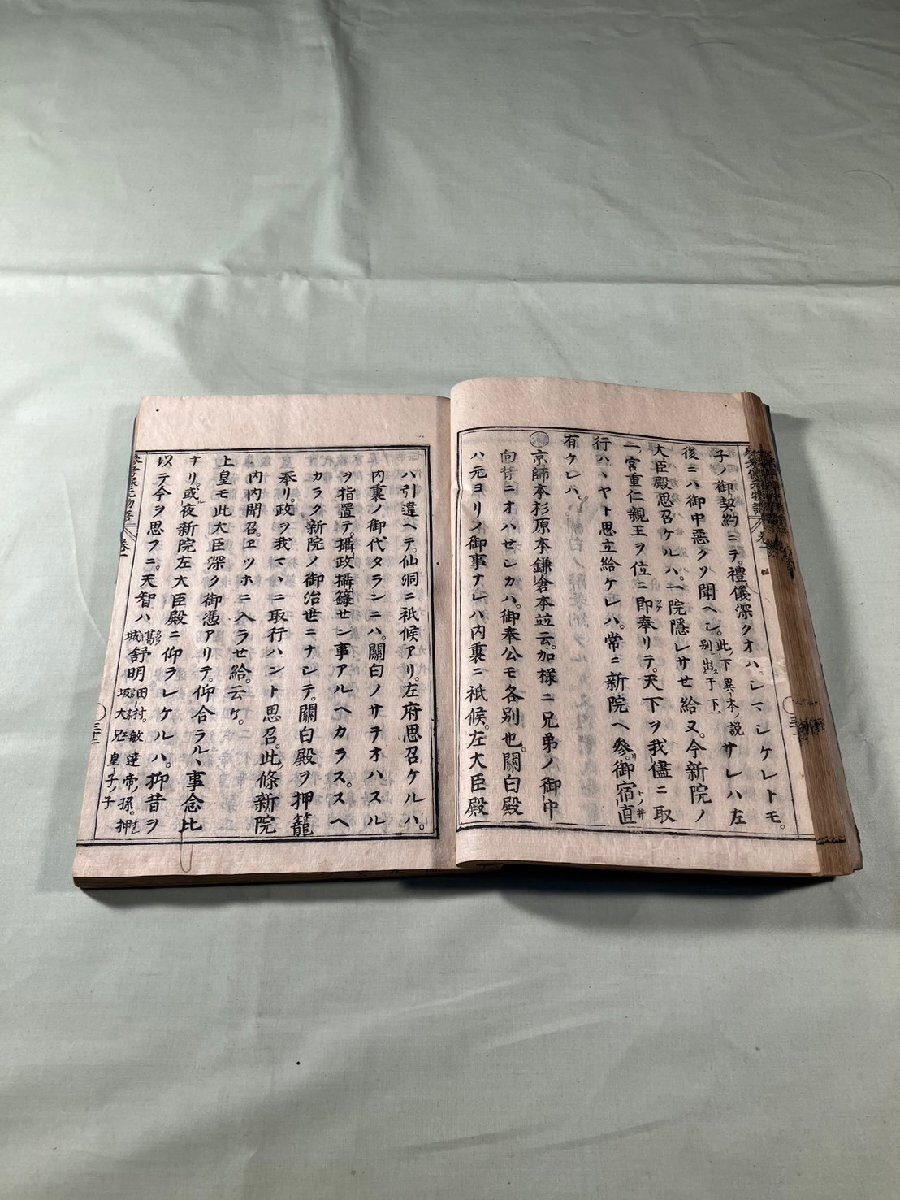 子ノ御契約ニテ。禮儀深クオハシマシケレトモ。
後ニハ御中惡クヲ聞ヘシ。此下異本ノ説別出于下サレハ左
大臣殿思召ケルハ。一院隱レサセ給又。今新院ノ
一宮重仁親王ヲ位ニ即奉リテ。天下ヲ我儘ニ取
行ハヽヤト思立給ケレハ。常ニ新院ヘ參。御宿直トノ井
有ケレハ。
京師本杉原本鎌倉本竝云。加樣ニ兄弟ノ御中
向背ニオハセシカハ。御奉公モ各別也。關白殿
ハ元ヨリノ御事ナレハ内裏ニ祇候左大臣殿
ハ引違ヘテ。仙洞ニ祇候アリ。左府思召ケルハ。
内裏ノ御代タランニハ。關白ノサテオハスル
ヲ指置テ。攝政攝籙セン事アルヘカラス。スヘ
カラク新院ノ御治世ニナシテ。關白殿ヲ押籠
奉リ政ヲ我マヽニ取行ハント思召。此條新院
内内聞召。エツホニ入ラせ給云ケ。
上皇モ此大臣深ク御憑アリテ。仰合ラルヽ事念比
ナリ。或夜新院左大臣殿ニ仰ラレケルハ。抑昔ヲ
以テ今ヲ思フニ。天智ハ舒明田村。敏達帝ノ孫。押坂大兄皇子ノ子
卷一